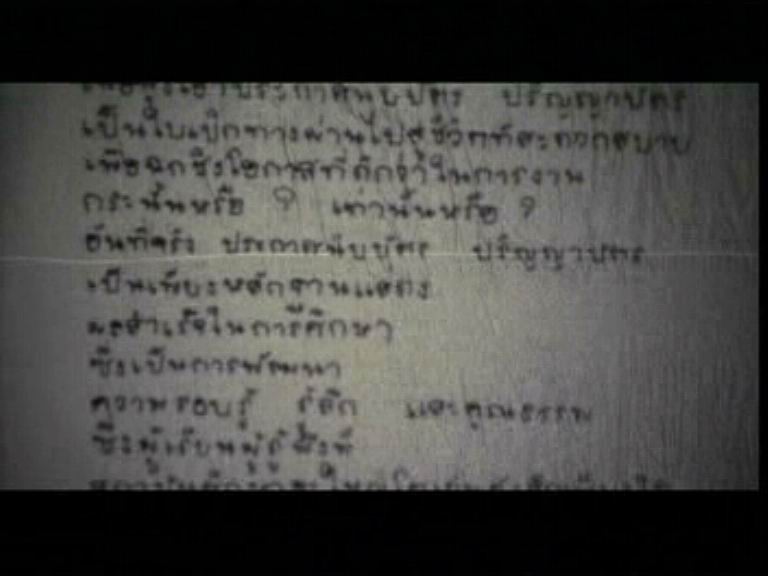 เพื่อมุ่งเอาประกาศนียบัตร ปริญญาบัตร
เป็นใบเบิกทางผ่านไปสู่ชีวิตที่สะดวกสบาย
เพื่อฉกชิงโอกาสที่ดีกว่าในการงาน
กระนั้นหรือ ? เท่านั้นหรือ ?
อันที่จริง ประกาศนียบัตร ปริญญาบัตร
เป็นเพียงหลักฐานแสดง
ผลสำเร็จในการศึกษา
ซึ่งเป็นการพัฒนา
ความรอบรู้ รู้สึก และคุณธรรม
ซึ่งผู้เรียนผู้รู้พึงมี